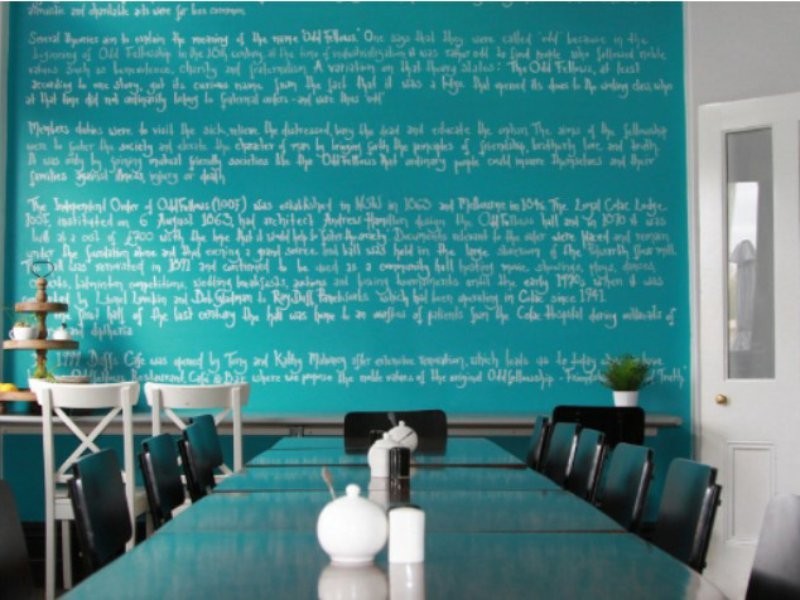 altruistic and charitable acts were far less common.
Several theories aim to explain the meaning of the name "Odd Fellows". One says that they were called 'odd' because in the
beginning of Odd Fellowship in the 18th century, at the time of industrialization it was rather odd to find people who followed noble
values such as benevolence, charity and fraternalism. A variation on that theory states: "The Odd Fellows, at least
according to one story, got its curious name from the fact that it was a lodge that opened its doors to the working class who
at that time did not ordinarily belong to fraternal orders - and were thus 'odd'
Members duties were to visit the sick, relieve the distressed, bury the dead and educate the orphan. The aims of the fellowship
were to foster the society and elevate the character of man by bringing forth the principles of friendship, brotherly love, and truth.
It was only by joining mutual friendly societies like the 'Oddfellows' that ordinary people could insure themselves and their
families against illness, injury or death
The Independent Order of Oddfellows (IOOF) was established in in and Melbourne in The Loyal Colac Lodge,
IOOF, instituted on 6 August 1863, had architect Andrew Hamilton design the Oddfellows hall and in 1870 it was
built at a cost of £700 with the hope that it would help to foster the society. Documents relevant to the order were placed and remain
under the foundation stone and that evening a grand soiree and ball was held in the large storeroom of the flour mill.
The hall was renovated in and continued to be used as a community hall hosting movie showings, plays, dances,
badminton competitions, wedding breakfasts, and boxing tournaments until the early 1970s when it was
by Lionel and to Roy Duffs which had been operating in Colac since 1941.
the first half of the last century the hall was home to of patients from the Colac Hospital during outbreaks of
and diptheria
Duffs Cafe was opened by Tony and Kathy after extensive renovation, which leads us to today
Oddfellows Restaurant, Cafe & Bar where we propose the noble values of the original Oddfellowship - Truth"